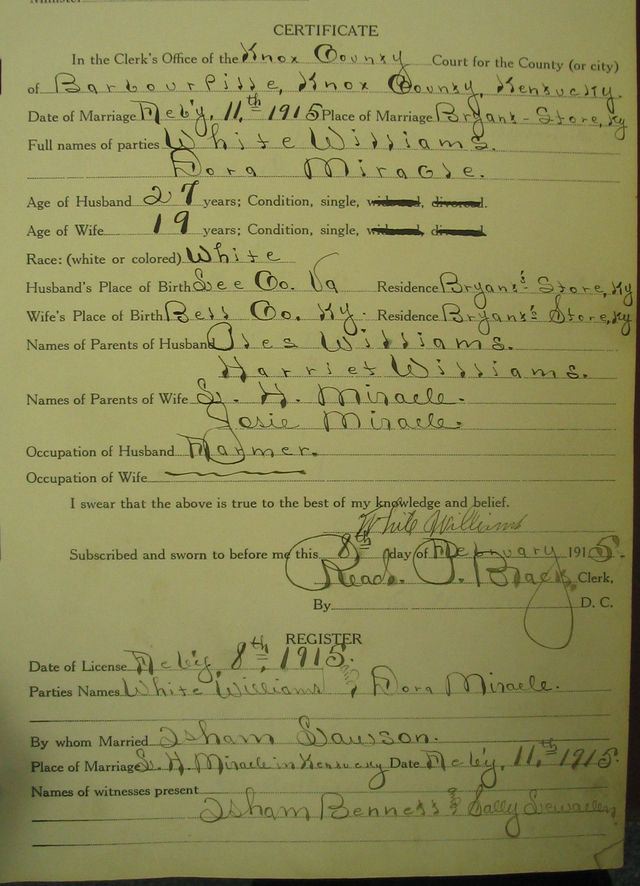 CERTIFICATE
In the Clerk's Office of the Knox County Court for the County (or city)
of Barbourville, Knox County, Kentucky.
Date of Marriage Feb'y, 11,th 1915 Place of Marriage Bryants-Store, Ky
Full names of parties White Williams.
Dora Miracle.
Age of Husband 27 years; Condition, single, widowed, divorced.
Age of Wife 19 years; Condition, single, widowed, divorced.
Race: (white or colored) White
Husband's Place of Birth Lee Co. Va Residence Bryant's-Store, Ky
Wife's Place of Birth Bell Co. Ky. Residence Bryant's Store, Ky
Names of Parents of Husband Williams.
Harriet Williams.
Names of Parents of Wife L. H. Miracle.
Josie Miracle.
Occupation of Husband Farmer.
Occupation of Wife
I swear that the above is true to the best of my knowledge and belief.
White Williams
Subscribed and sworn to before me this 8th day of February 1915.
Read P. Black, Clerk,
By D. C.
REGISTER
Date of License Feb'y, 8th, 1915.
Parties Names White Williams & Dora Miracle.
By whom Married Isham Lawson.
Place of Marriage L. H. Miracle in Kentucky Date Feb'y, 11,th 1915.
Names of witnesses present
Isham Bennett & Sally